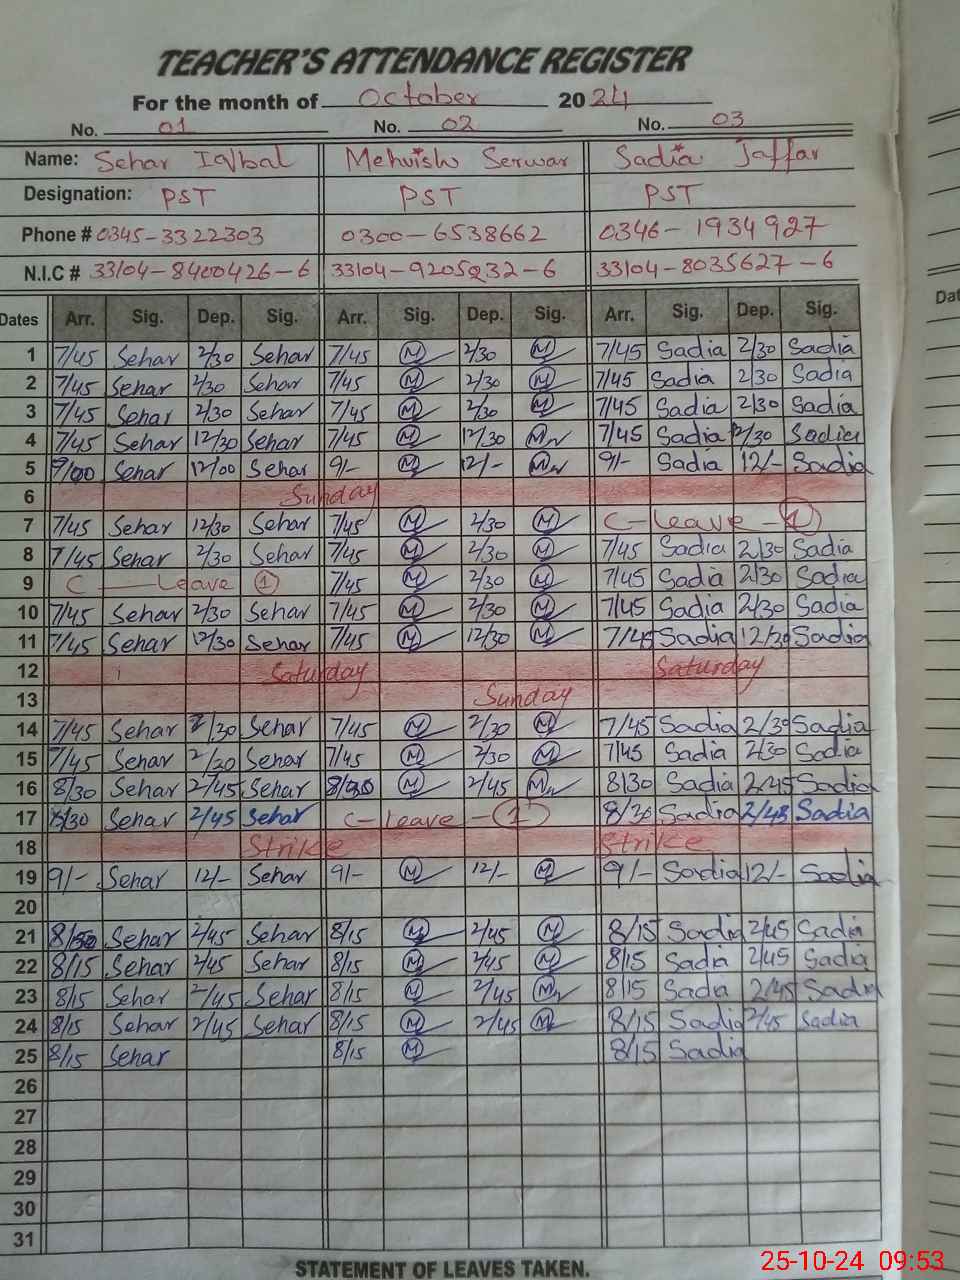 TEACHER'S ATTENDANCE REGISTER
For the month of October 2024
No. 01 No. 02 No. 03
Name: Sehar Iqbal Mehvish Serwar Sadia Jaffar
Designation: PST PST PST
Phone # 0345-3322303 0300-6538662 0346-1934927
N.I.C # 33104-8400426-6 33104-9205232-6 33104-8035627-6
Dates Arr. Sig. Dep. Sig. Arr. Sig. Dep. Sig. Arr. Sig. Dep. Sig.
1 7/45 Sehar 2/30 Sehar 7/45 M 2/30 M 7/45 Sadia 2/30 Sadia
2 7/45 Sehar 2/30 Sehar 7/45 M 2/30 M 7/45 Sadia 2/30 Sadia
3 7/45 Sehar 2/30 Sehar 7/45 M 2/30 M 7/45 Sadia 2/30 Sadia
4 7/45 Sehar 12/30 Sehar 7/45 M 12/30 M 7/45 Sadia 12/30 Sadia
5 9/00 Sehar 12/00 Sehar 9/- M 12/- M 9/- Sadia 12/- Sadia
6 Sunday
7 7/45 Sehar 12/30 Sehar 7/45 M 2/30 M C-leave-1
8 7/45 Sehar 2/30 Sehar 7/45 M 2/30 M 7/45 Sadia 2/30 Sadia
9 C-Leave 1 7/45 M 2/30 M 7/45 Sadia 2/30 Sadia
10 7/45 Sehar 2/30 Sehar 7/45 M 2/30 M 7/45 Sadia 2/30 Sadia
11 7/45 Sehar 12/30 Sehar 7/45 M 12/30 M 7/45 Sadia 12/30 Sadia
12 Saturday Saturday
13 Sunday
14 7/45 Sehar 2/30 Sehar 7/45 M 2/30 M 7/45 Sadia 2/30 Sadia
15 7/45 Sehar 2/20 Sehar 7/45 M 2/30 M 7/45 Sadia 2/30 Sadia
16 8/30 Sehar 2/45 Sehar 8/30 M 2/45 M 8/30 Sadia 2/45 Sadia
17 8/30 Sehar 2/45 Sehar C-leave-1 8/30 Sadia 2/45 Sadia
18 Strike Strike
19 9/- Sehar 12/- Sehar 9/- M 12/- M 9/- Sadia 12/- Sadia
20
21 Sehar 2/45 Sehar 8/15 M 2/45 M 8/15 Sadia 2/45 Sadia
22 8/15 Sehar 2/45 Sehar 8/15 M 2/45 M 8/15 Sadia 2/45 Sadia
23 8/15 Sehar 2/45 Sehar 8/15 M 2/45 M 8/15 Sadia 2/45 Sadia
24 8/15 Sehar 2/45 Sehar 8/15 M 2/45 M 8/15 Sadia 2/45 Sadia
25 8/15 Sehar 8/15 M 8/15 Sadia
26
27
28
29
30
31
STATEMENT OF LEAVES TAKEN.
25-10-24 09:53